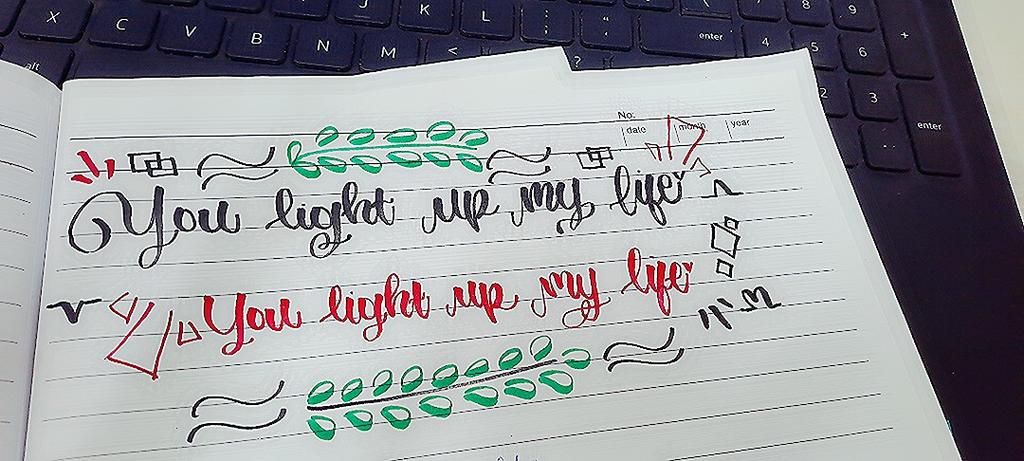 X C V B N M < J K L : ; " ' ? enter 4 5 6 8 9 + 2 3 enter
alt
No:
date month year
You light up my life
You light up my life